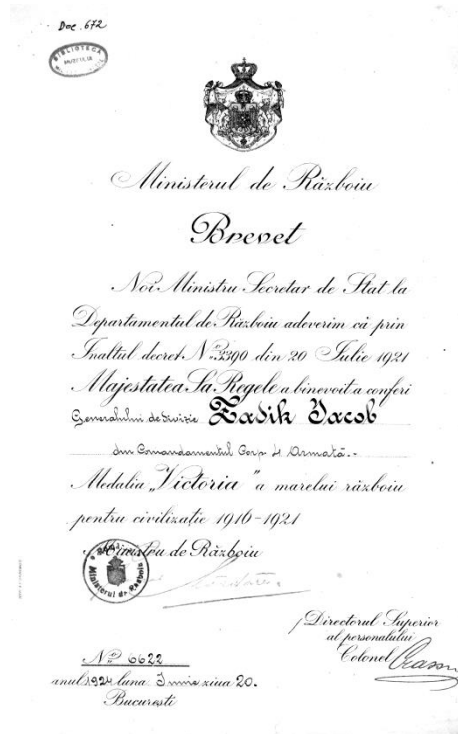 Doc. 672
BIBLIOTECA
Ministerul de Războiu
Brevet
Noi Ministru Secretar de Stat la
Departamentul de Războiu adeverim că prin
Inaltul decret No 3390 din 20 Iulie 1921
Majestatea Sa Regele a binevoit a conferi
Generalului de divizie Zadik Jacob
din Comandamentul Corp 4 Armată.-
Medalia „Victoria" a marelui războiu
pentru civilizatie 1916-1921
Ministru de Războiu
Ministerul de Războiu
p/ Directorul Superior
al personalului
Colonel
No 6622
anul 1924 luna Iunie ziua 20.
Bucuresti